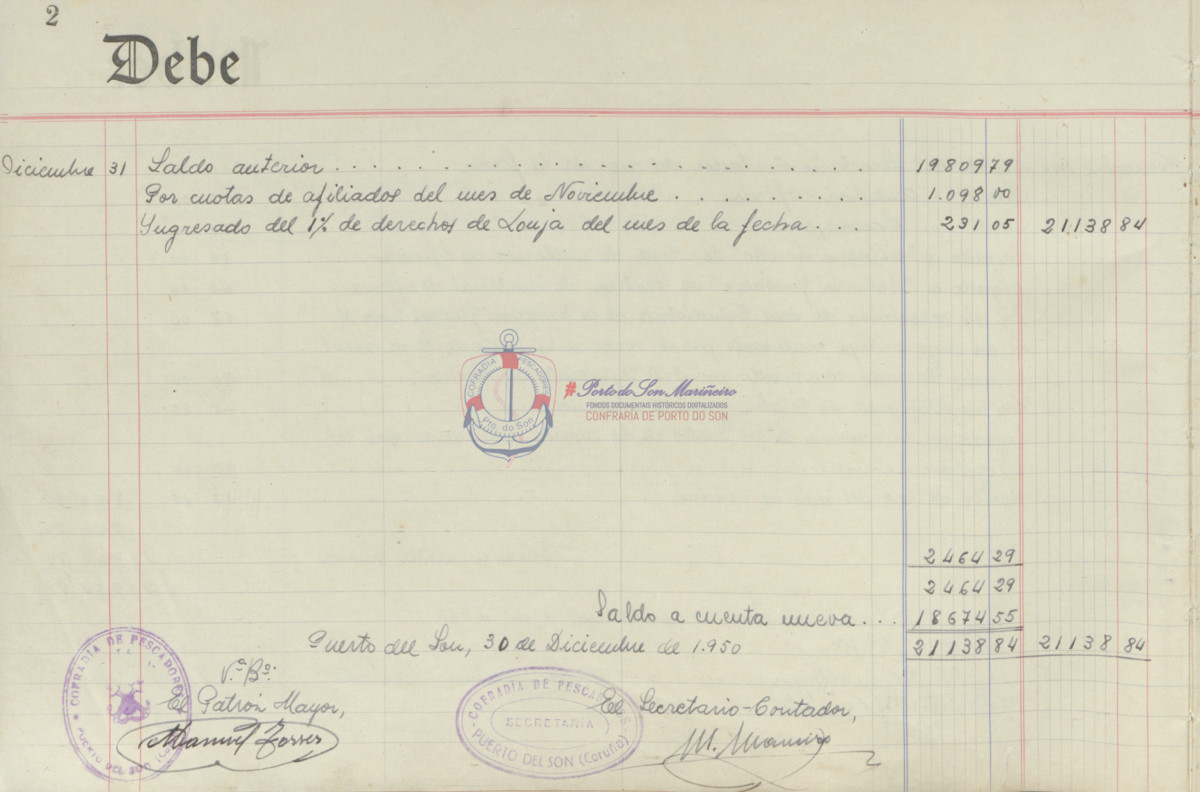 2
Debe
Diciembre 31 Saldo anterior . . . . . . . . . . . . . . . . . . . 19809 79
Por cuotas de afiliados del mes de Noviembre . . . . . . . . . 1.098 00
Yngresado del 1% de derechos de Lonja del mes de la fecha . . . 231 05 21138 84
COFRADIA PESCADORES
Pto. do Son
#Porto do Son Mariñeiro
FONDOS DOCUMENTAIS HISTÓRICOS DIXITALIZADOS
CONFRARÍA DE PORTO DO SON
2464 29
2464 29
Saldo a cuenta nueva . . . 18674 55
Puerto del Son, 30 de Diciembre de 1.950 21138 84 21138 84
COFRADIA DE PESCADORES
PUERTO DEL SON
Vº Bº:
El Patrón Mayor,
Manuel Torres
COFRADÍA DE PESCADORES
SECRETARÍA
PUERTO DEL SON (Coruña)
El Secretario-Contador,